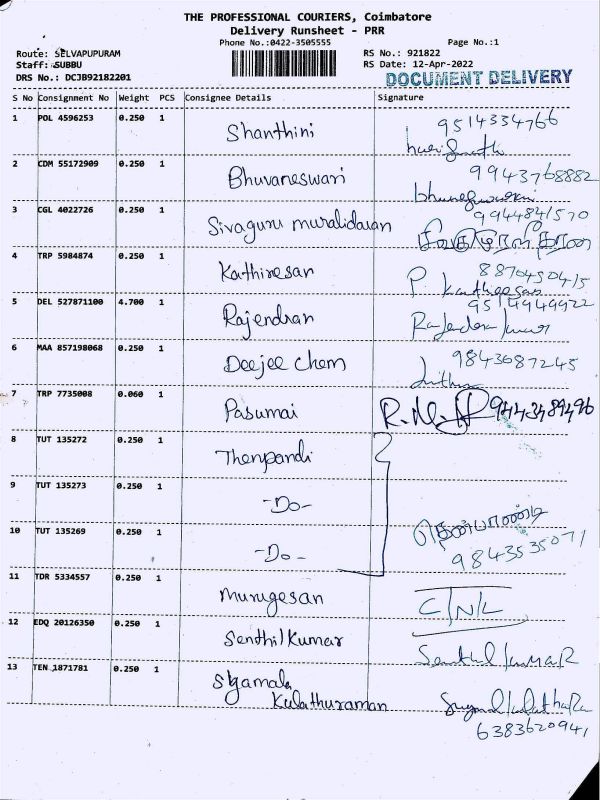 THE PROFESSIONAL COURIERS, Coimbatore
Delivery Runsheet - PRR
Phone No.:0422-3505555
Page No.:1
Route: SELVAPUPURAM
RS No.: 921822
Staff: SUBBU
RS Date: 12-Apr-2022
DRS No.: DCJB92182201
DOCUMENT DELIVERY
S No Consignment No Weight PCS Consignee Details Signature
1 POL 4596253 0.250 1 Shanthini 9514334766
2 CDM 55172909 0.250 1 Bhuvaneswari 9943768882
3 CGL 4022726 0.250 1 Sivaguru muralidaran 9944841570
4 TRP 5984874 0.250 1 Kathiresan 8870450415
P. Kathiresan
5 DEL 527871100 4.700 1 Rajendran 9514949922
6 MAA 857198068 0.250 1 Deejee Chem 9843687245
7 TRP 7735008 0.060 1 Pasumai 9443489496
8 TUT 135272 0.250 1 Thenpandi
9 TUT 135273 0.250 1 -Do-
10 TUT 135269 0.250 1 -Do- தென்பாண்டி
9843535071
11 TDR 5334557 0.250 1 Murugesan C/N/L
12 EDQ 20126350 0.250 1 Senthilkumar Senthil kumar
13 TEN 1871781 0.250 1 Syamala
Kulathuraman
6383620941